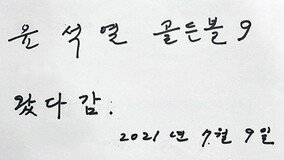 윤석열 골든볼 9
왔다감:
2021년 7월 9일